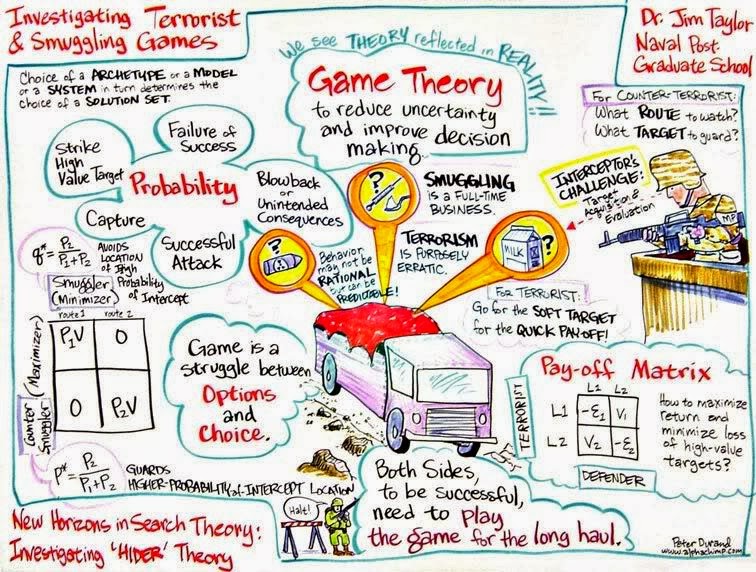 Investigating Terrorist
& Smuggling Games
Choice of a ARCHETYPE or a MODEL
or a SYSTEM in turn determines the
choice of a SOLUTION SET.
We see THEORY reflected in REALITY!!
Game Theory
to reduce uncertainty
and improve decision
making.
Dr. Jim Taylor
Naval Post
Graduate School
For COUNTER-TERRORIST:
What ROUTE to watch?
What TARGET to guard?
INTERCEPTOR'S
CHALLENGE:
Target
Acquisition &
Evaluation
MP
Strike
High
Value Target
Failure of
Success
Probability
Blowback
or
Unintended
Consequences
Capture
Successful
Attack
?
?
?
MILK
SMUGGLING
is a FULL-TIME
BUSINESS.
TERRORISM
is PURPOSELY
ERRATIC.
Behavior
may not be
RATIONAL
but can be
PREDICTABLE!
For TERRORIST:
Go for the SOFT TARGET
for the QUICK PAY-OFF!
q* = P2
P1+P2
AVOIDS
LOCATION
of High
Probability
of Intercept
Smuggler
(Minimizer)
route 1 route 2
Counter Smuggler (Maximizer)
P1V 0
0 P2V
P* = P2
P1+P2
GUARDS
HIGHER-PROBABILITY-of-INTERCEPT LOCATION
Game is a
struggle between
Options
and
Choice.
Pay-off Matrix
TERRORIST
L1 L2
L1 -E1 V1
L2 V2 -E2
DEFENDER
How to maximize
return and
minimize loss
of high-value
targets?
Both Sides,
to be successful,
need to play
the game for the long haul.
Halt!
New Horizons in Search Theory:
Investigating 'HIDER' Theory
Peter Durand
www.alphachimp.com